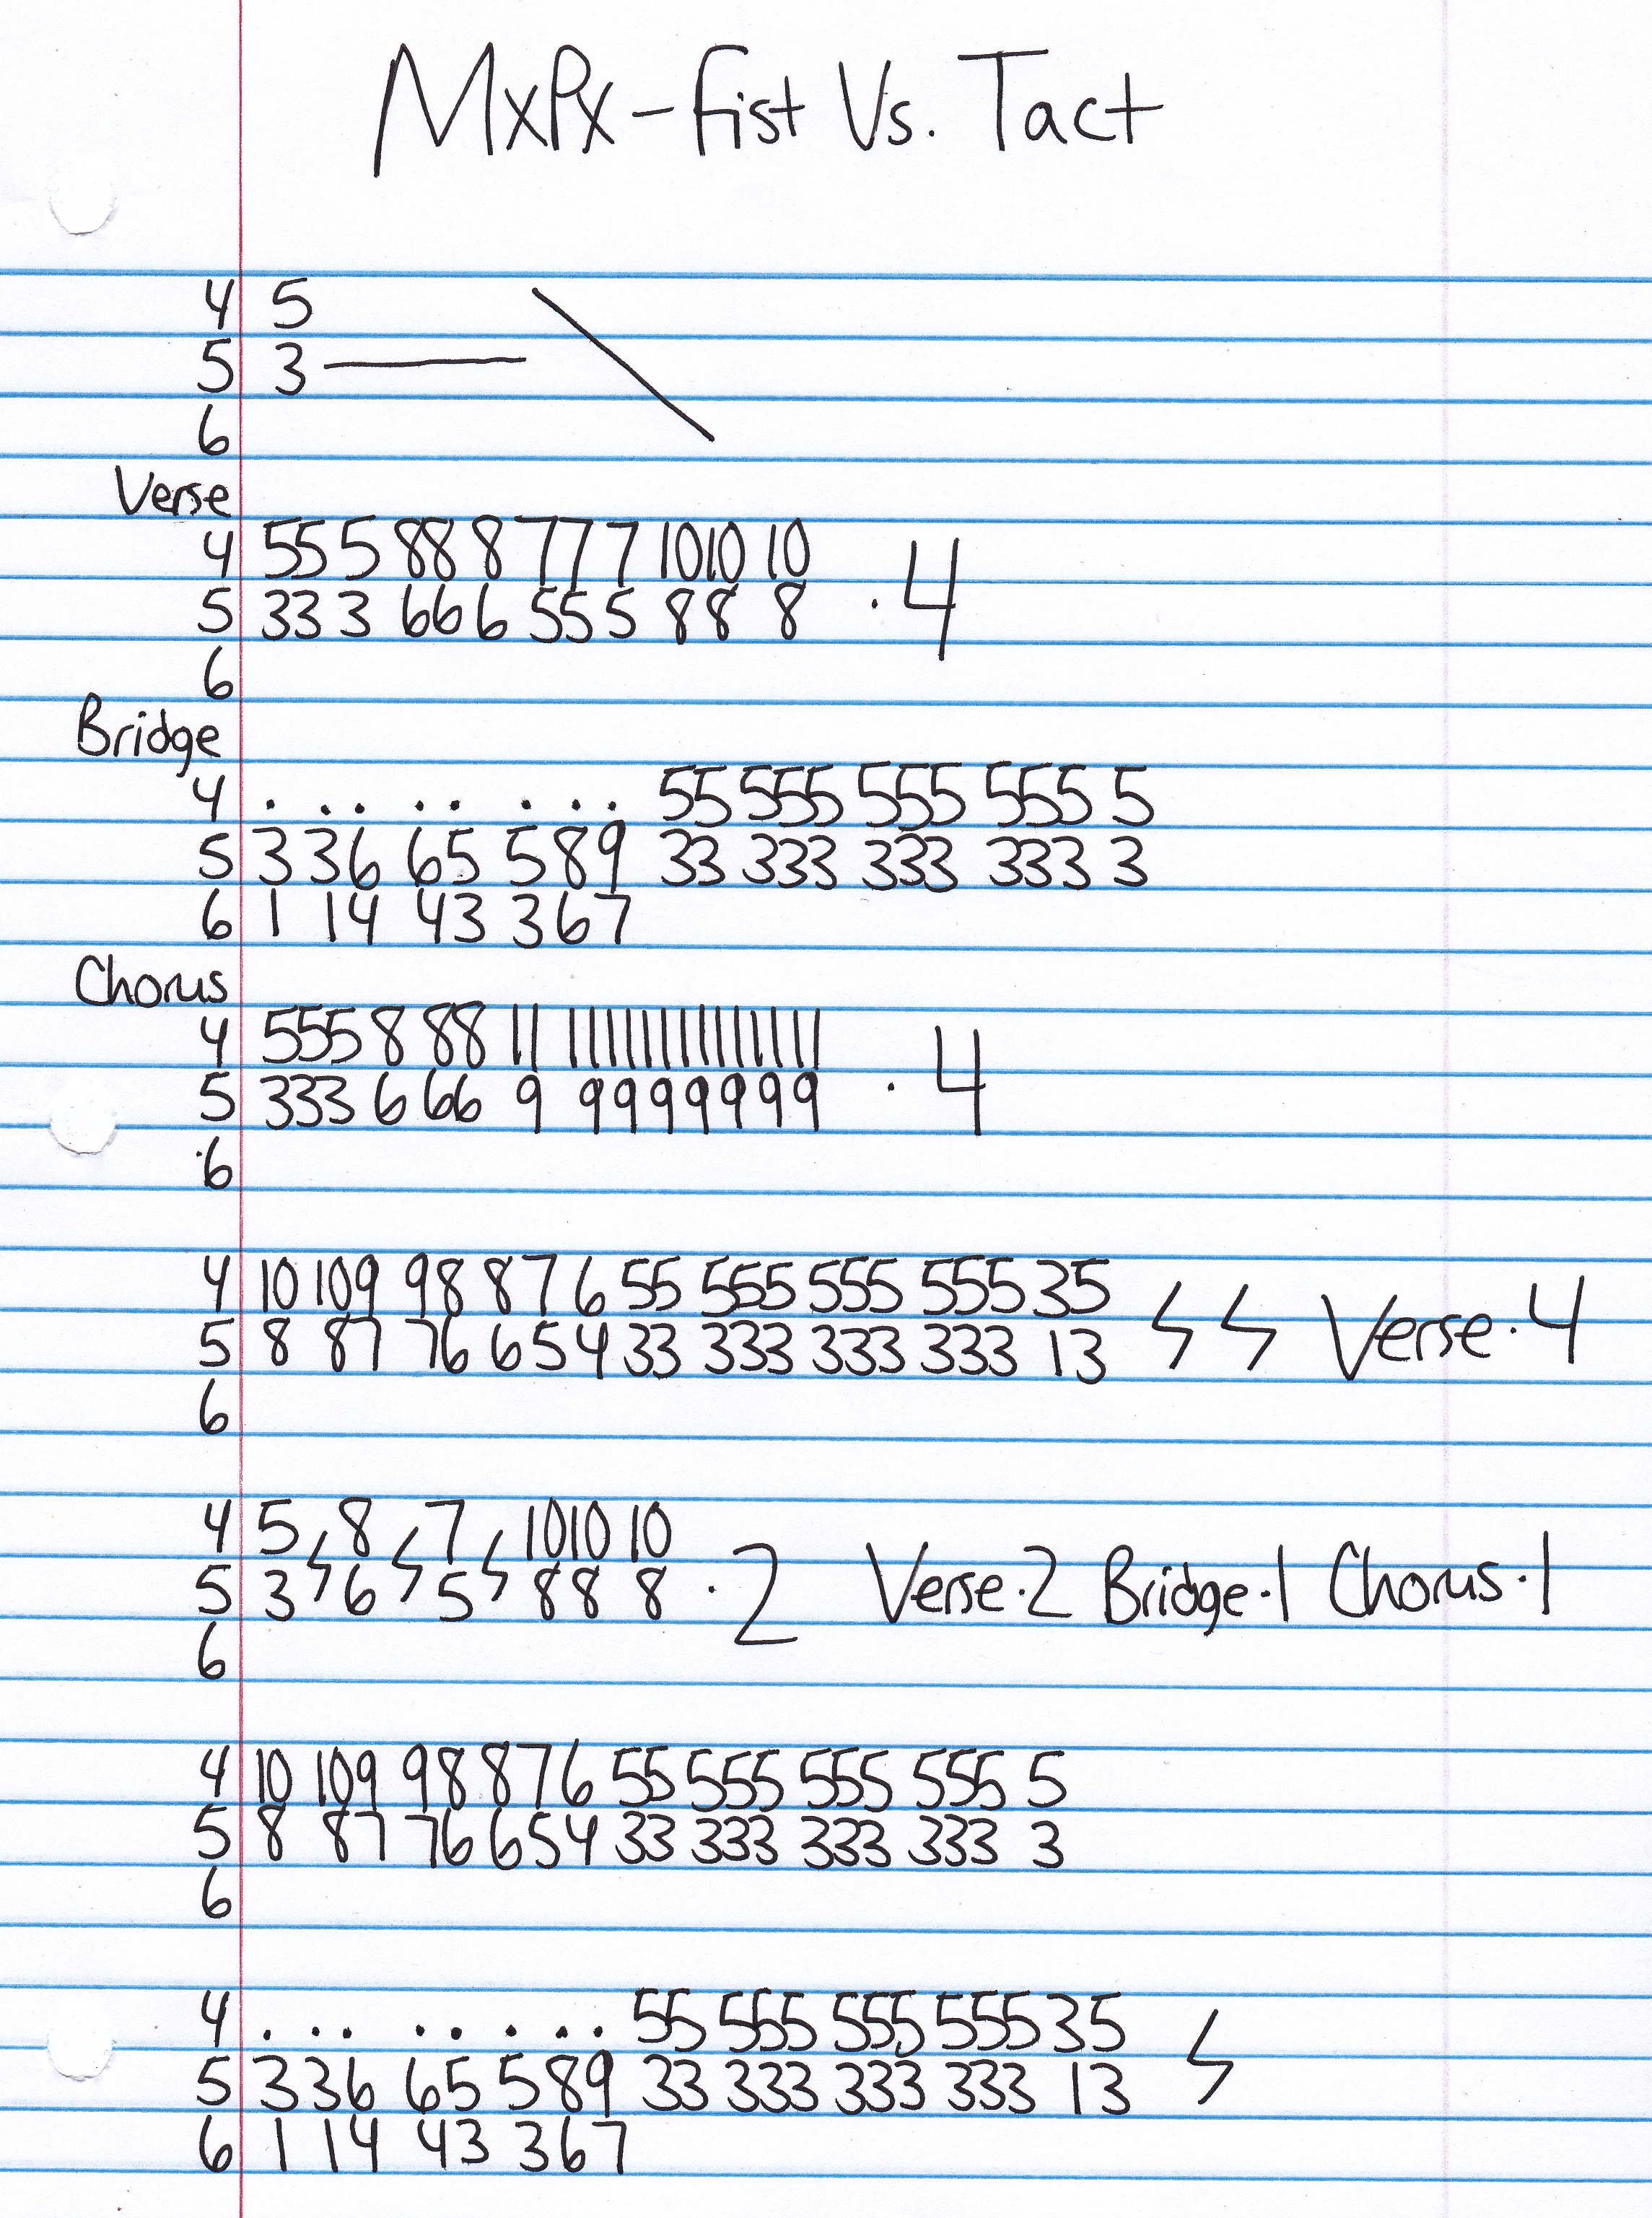 MxPx - Fist Vs. Tact
4 5
5 3
6
Verse
4 55 5 88 8 77 7 1010 10
5 33 3 66 6 55 5 88 8 . 4
6
Bridge
4 . . . . . . . . 55 555 555 555 5
5 3 36 65 5 89 33 333 333 333 3
6 1 14 43 3 67
Chorus
4 555 8 88 11 11111111111111
5 333 6 66 9 9999999 . 4
6
4 10 109 98 8 7 6 55 555 555 555 35
5 8 87 76 6 5 4 33 333 333 333 13 Verse . 4
6
4 5 8 7 1010 10
5 3 6 5 88 8 . 2 Verse . 2 Bridge . 1 Chorus . 1
6
4 10 109 98 8 7 6 55 555 555 555 5
5 8 87 76 6 5 4 33 333 333 333 3
6
4 . . . . . . . . 55 555 555 555 35
5 3 36 65 5 89 33 333 333 333 13
6 1 14 43 3 67